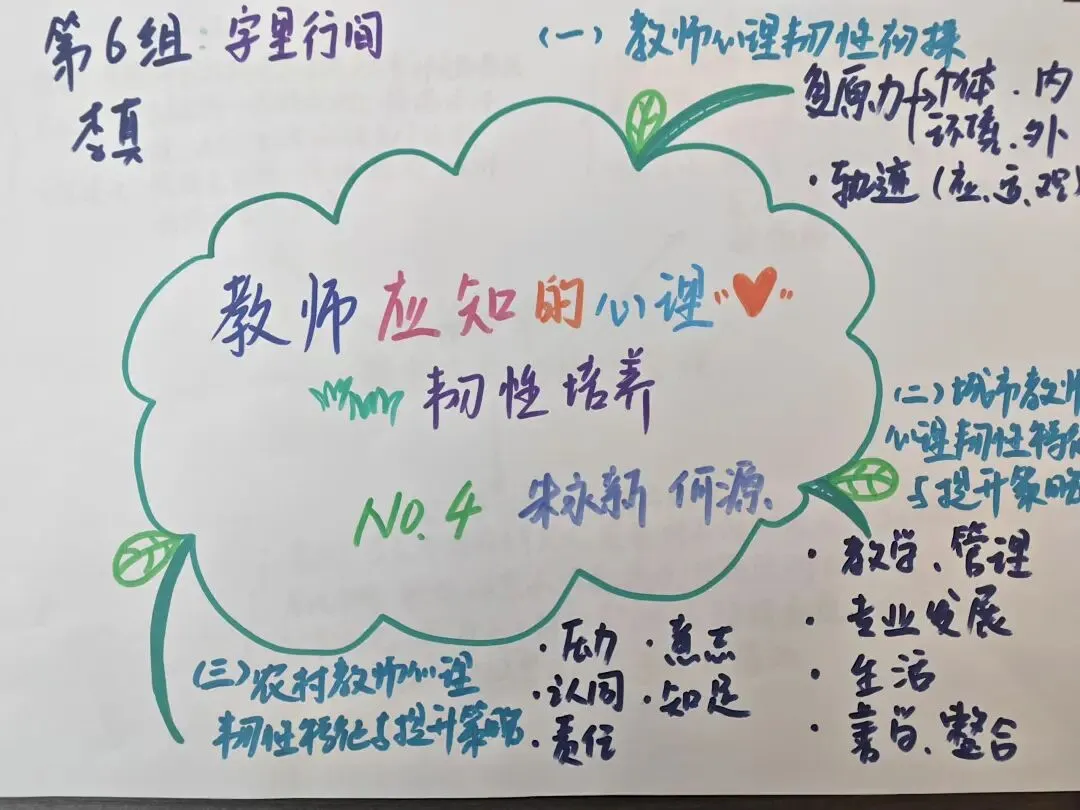 第6组：字里行间
李真
教师应知的心理
韧性培养
NO.4 朱永新 何源
（一）教师心理韧性初探
复原力→个体、内
环境、外
·轨迹（应、
（二）城市教师
心理韧性特征
与提升策略
·教学、管理
·专业发展
·生活
·善学、整合
（三）农村教师心理
韧性特征与提升策略
·压力 ·意志
·认同 ·知足
·责任